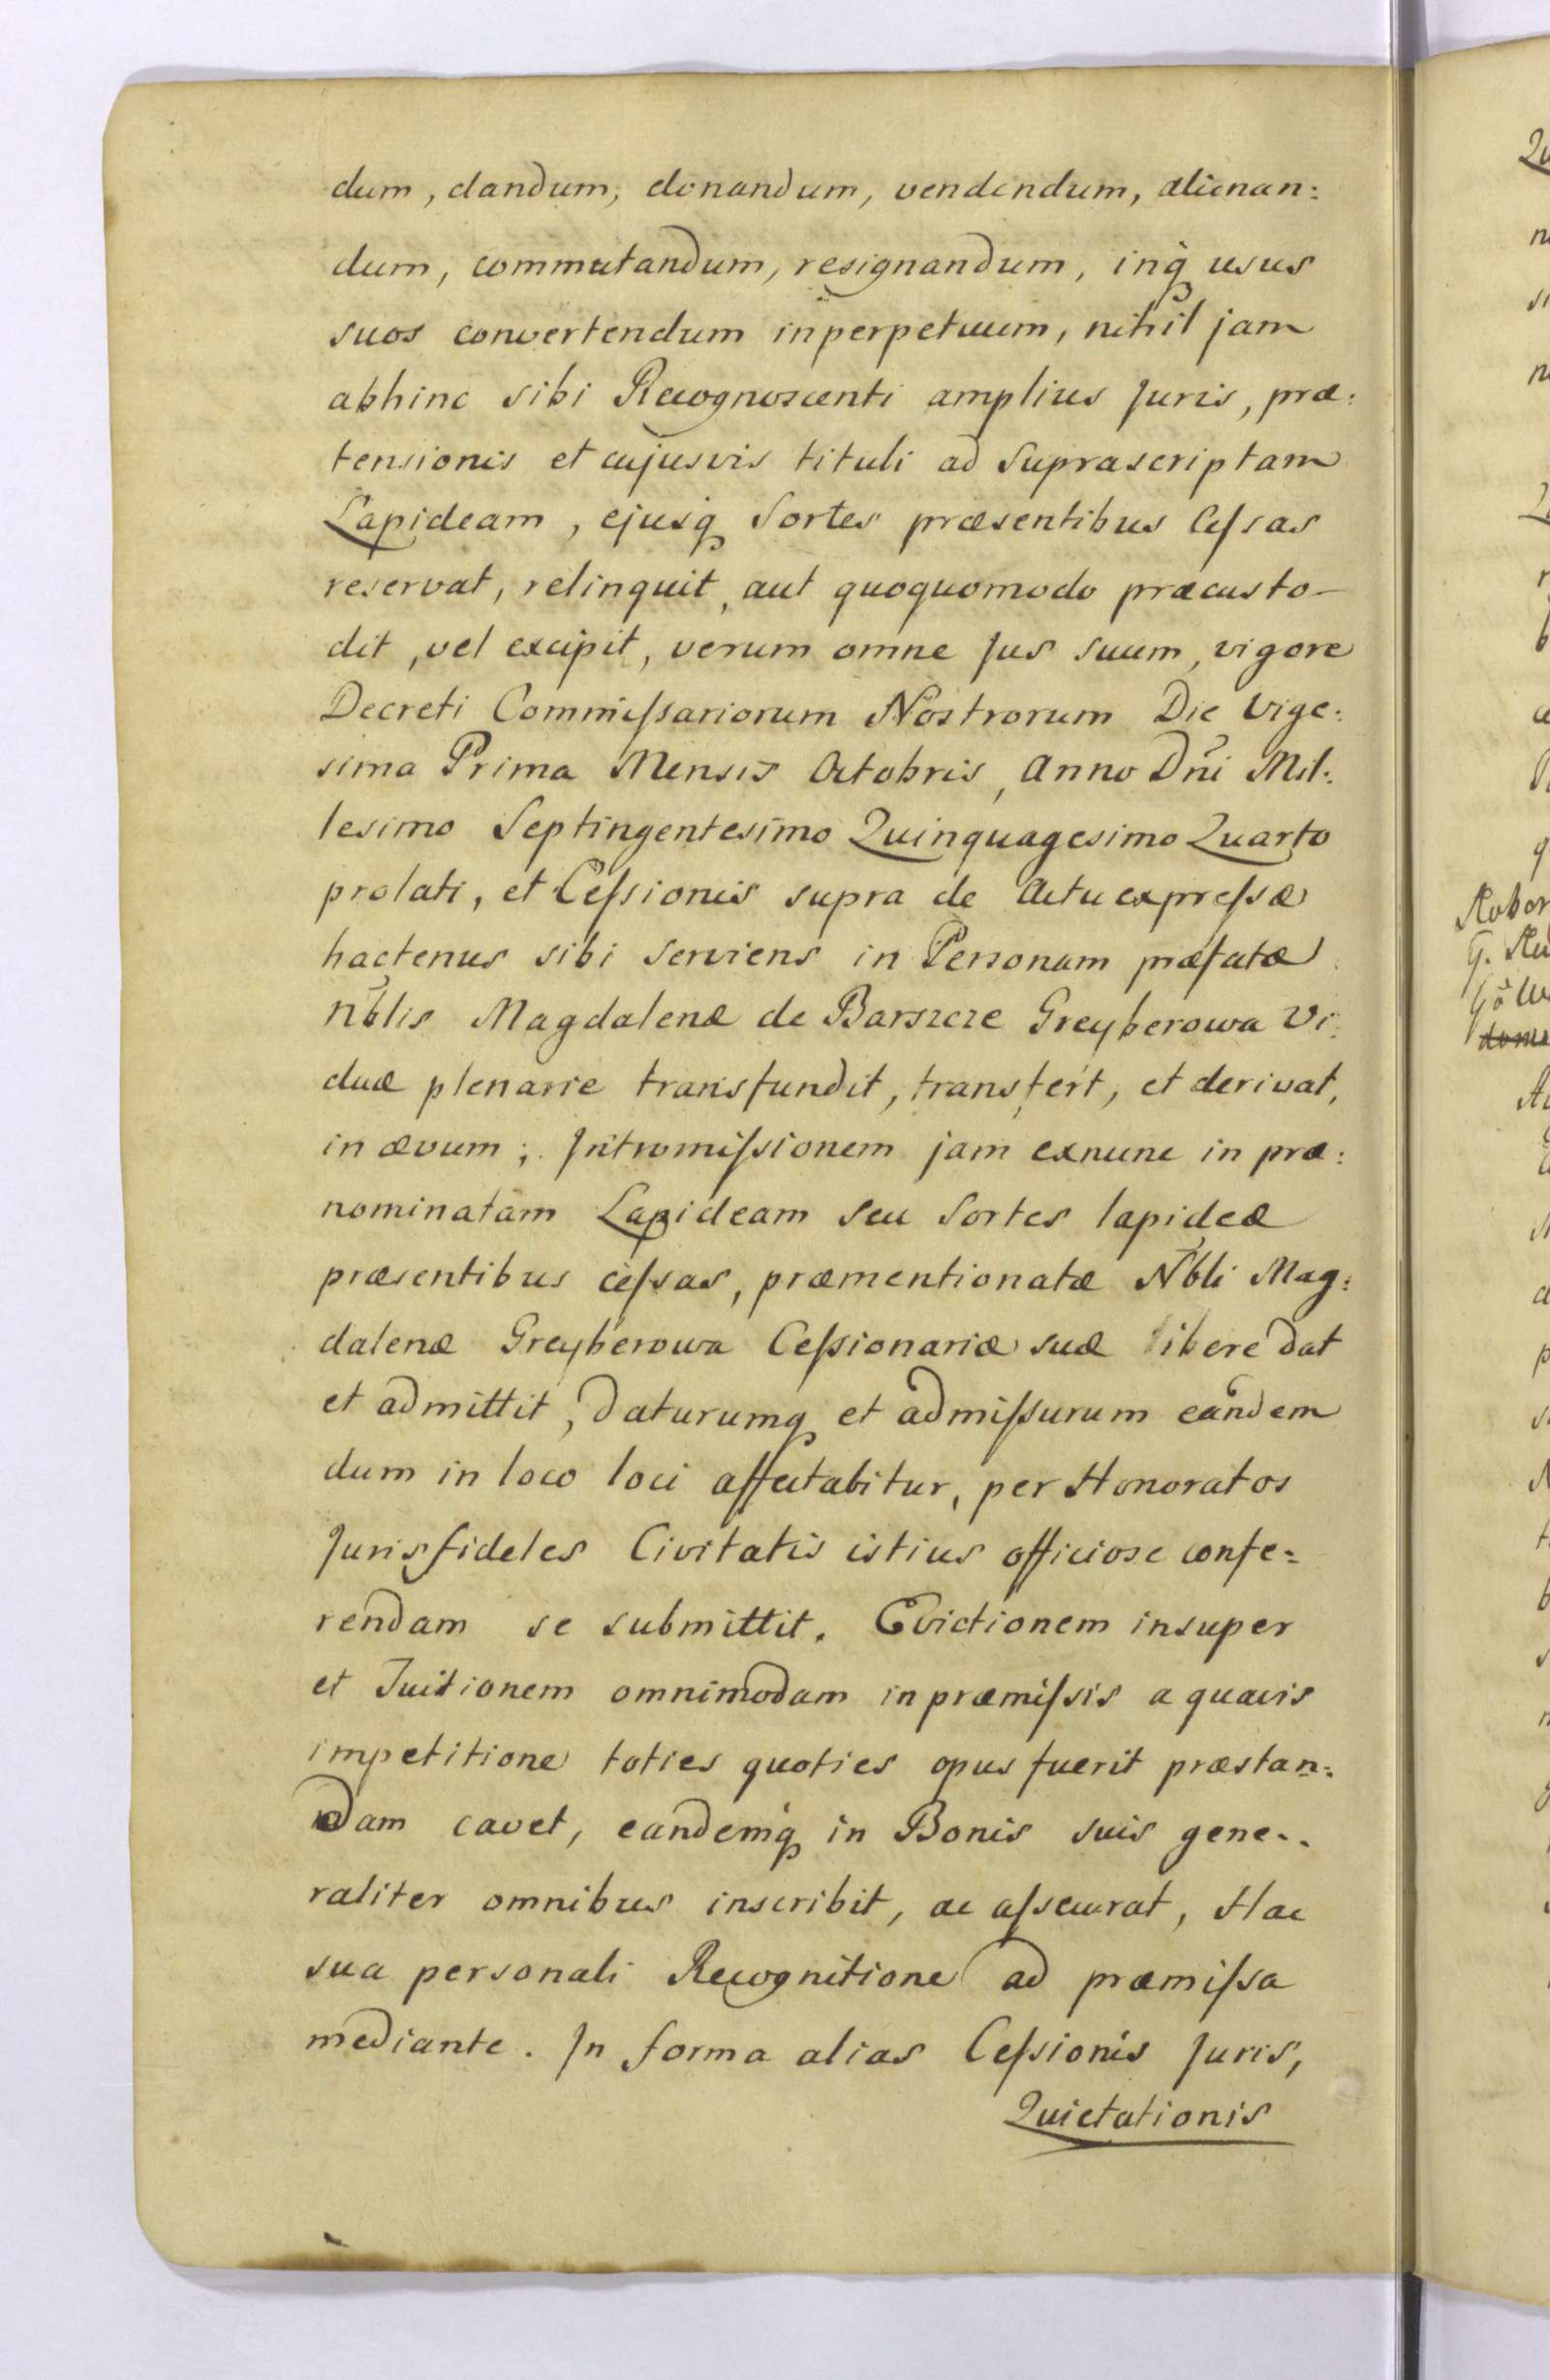 dum, dandum, donandum, vendendum, alienan:
dum, commutandum, resignandum, inq́ usus
suos convertendum inperpetuum, nihil jam
abhinc sibi Recognoscenti amplius Juris, præ:
tensionis et cujusvis tituli ad Suprascriptam
Lapideam, ejusq́ Sortes præsentibus Ceſsas
reservat, relinquit, aut quoquomodo præcusto-
dit, vel excipit, verum omne Jus suum, vigore
Decreti Commiſsariorum Nostrorum Die Vige:
sima Prima Mensis Octobris, Anno Dn̄i Mil:
lesimo Septingentesimo Quinquagesimo Quarto
prolati, et Ceſsionis supra de Actu expreſsæ
hactenus sibi serviens in Personam præfatæ
Nb̄lis Magdalenæ de Barszcze Greyberowa Vi:
duæ plenarie transfundit, transfert, et derivat,
in ævum; Intromiſsionem jam exnunc in præ:
nominatam Lapideam seu Sortes lapideæ
præsentibus ceſsas, præmentionatæ Nb̄li Mag:
dalenæ Greyberowa Ceſsionariæ suæ libere dat
et admittit, daturumq́ et admiſsurum eandem
dum in loco loci affectabitur, per Honoratos
Jurisfideles Civitatis istius officiose confe=
rendam se submittit. Evictionem insuper
et Tuitionem omnimodam in præmiſsis a quavis
impetitione toties quoties opus fuerit præstan:
dam cavet, eandemq́ in Bonis suis gene..
raliter omnibus inscribit, ac aſsecurat, Hac
sua personali Recognitione ad præmiſsa
mediante. In forma alias Ceſsionis Juris,
Quietationis